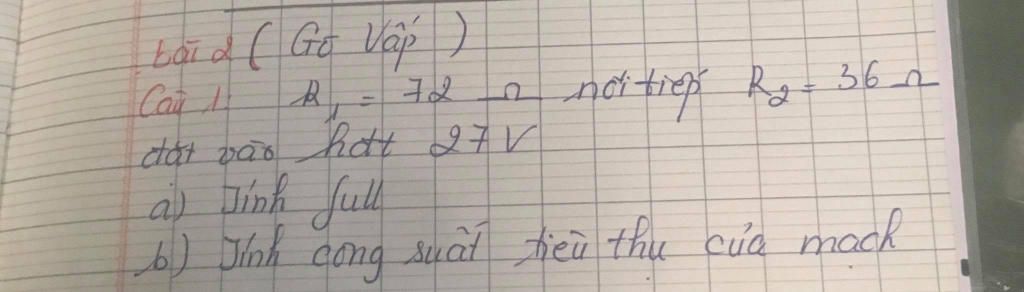 bài 2 ( Gò Vấp )
Câu 1: R₁ = 72 Ω nối tiếp R₂ = 36 Ω
đặt vào hđt 27V
a) Tính full
b) Tính công suất tiêu thụ của mạch